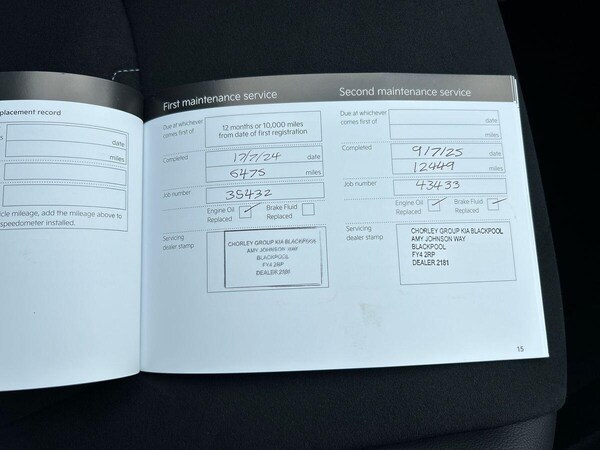 placement record
date
miles
cle mileage, add the mileage above to
speedometer installed.
First maintenance service
Due at whichever
comes first of
12 months or 10,000 miles
from date of first registration
Completed
17/7/24 date
6475 miles
Job number
35432
Engine Oil
Replaced
Brake Fluid
Replaced
Servicing
dealer stamp
CHORLEY GROUP KIA BLACKPOOL
AMY JOHNSON WAY
BLACKPOOL
FY4 2RP
DEALER
Second maintenance service
Due at whichever
comes first of
date
miles
Completed
9/7/25 date
12449 miles
Job number
43433
Engine Oil
Replaced
Brake Fluid
Replaced
Servicing
dealer stamp
CHORLEY GROUP KIA BLACKPOOL
AMY JOHNSON WAY
BLACKPOOL
FY4 2RP
DEALER 2181
15